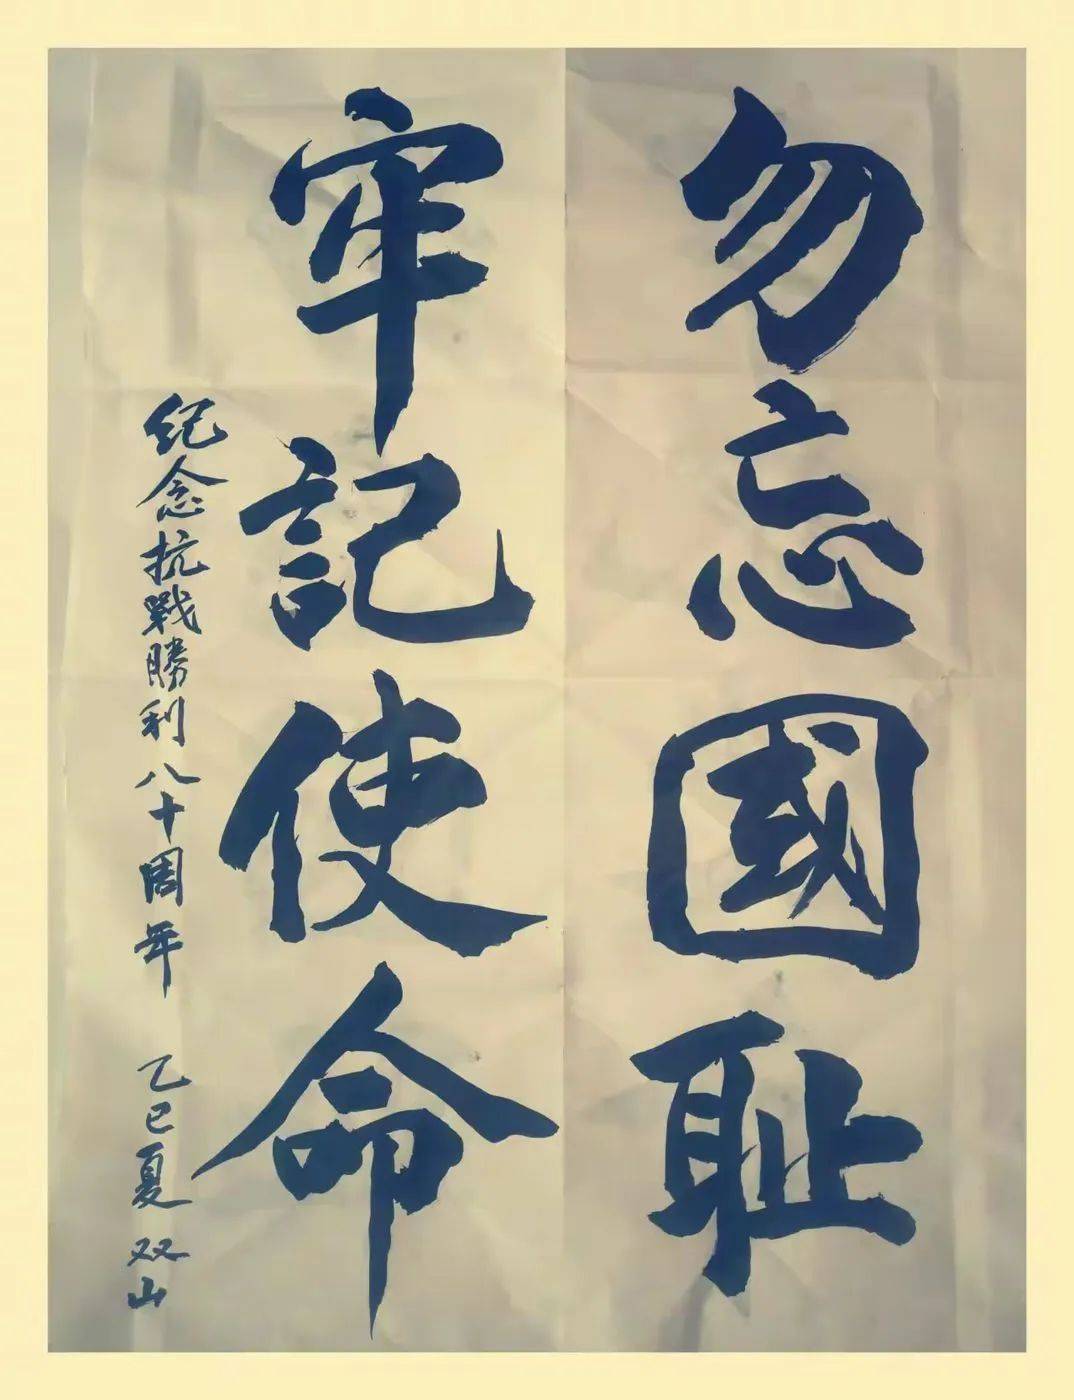 勿忘國耻
牢記使命
纪念抗戰勝利八十周年 乙巳夏 双山